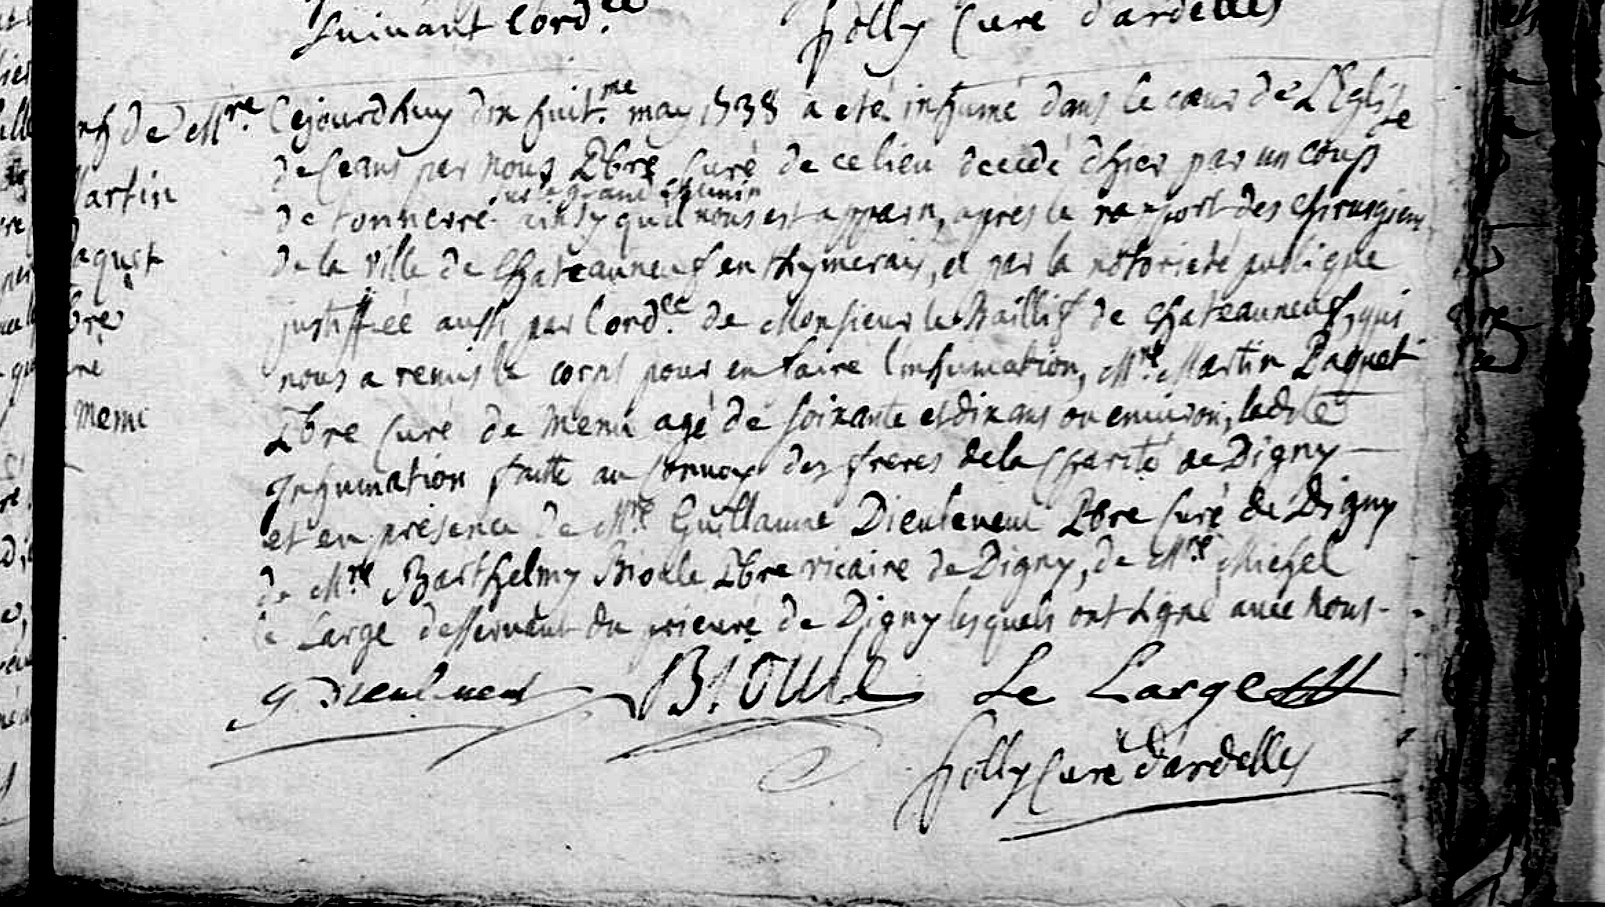 suivant l'ord.ce
Jolly Curé d'ardelles
inh de Mre
Martin
Paquet
Pbre
Curé
Menu
Cejourdhuy dix huit.me may 1738 a eté inhumé dans le cœur de L'Eglise
de Ceans par nous Pbre Curé de ce lieu decedé d'hier par un coup
sur le grand chemin
de tonnerre ainsy qu'il nous est apparu, apres le raport des chirurgiens
de la ville de Chateauneuf en thymerais, et par la notorieté publique
justiffiéé aussi par l'ord.ce de Monsieur le Baillif de Chateauneuf, qui
nous a remis le corps pour en faire l'inhumation, Mre Martin Paquet
Pbre Curé de Menu agé de soixante et dix ans ou environ, ladite
Inhumation faitte au Convoy des freres de la Charité de Digny
et en présence de Mre Guillaume Dieuleveut Pbre Curé de Digny
de Mre Barthelmy Bioule Pbre vicaire de Digny, de Mre Michel
le Large desservant du prieuré de Digny lesquels ont signé avec nous
G. Dieuleveut Bioule Le Large
Jolly Curé d'ardelles